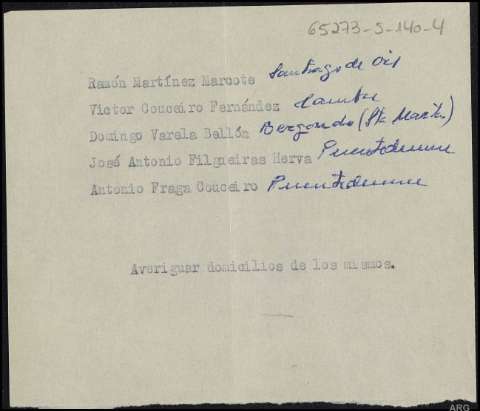 65273-S-140-4
Ramón Martínez Marcote Santiago de
Victor Couceiro Fernández Cambre
Domingo Varela Bellón Bergondo (Sta Marta)
José Antonio Filgueiras Herva Puentedeume
Antonio Fraga Couceiro Puentedeume
Averiguar domicilios de los mismos.
ARG